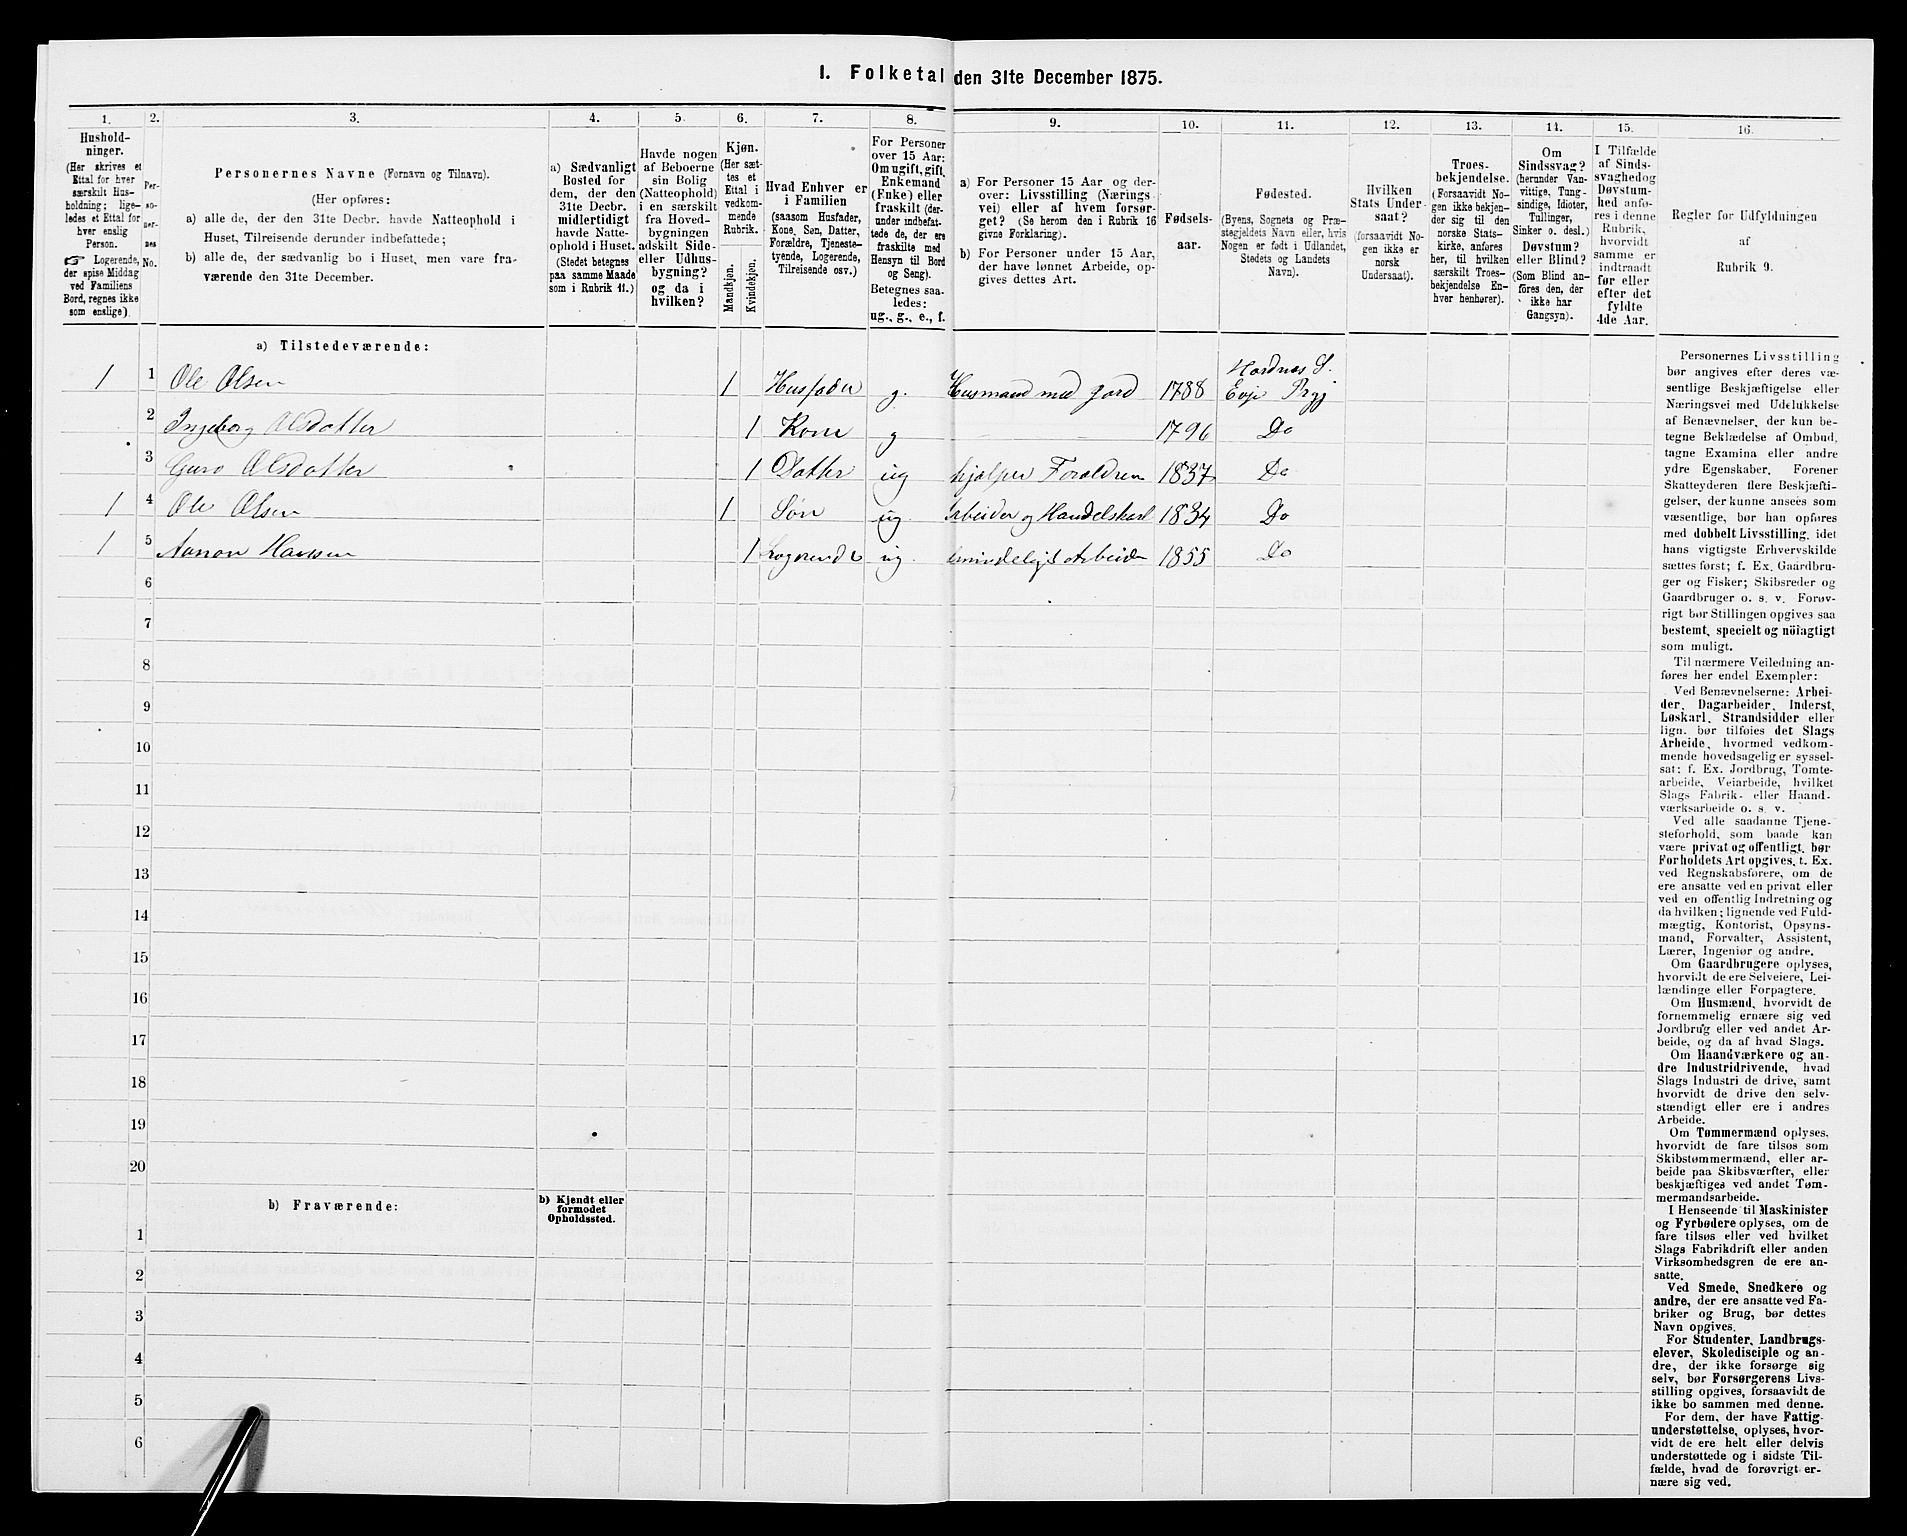 I. Folketal den 31te December 1875.
1.
2.
3.
4.
5.
6.
7.
8.
9.
10.
11.
12.
13.
14.
15.
16.
Hushold-
ninger.
(Her skrives et
Ettal for hver
særskilt Hus-
holdning; lige-
ledes et Ettal for
hver enslig
Person.
☞ Logerende,
der spise Middag
ved Familiens
Bord, regnes ikke
som enslige).
Per-
so-
ner-
nes
No.
Personernes Navne (Fornavn og Tilnavn).
(Her opføres:
a) alle de, der den 31te Decbr. havde Natteophold i
Huset, Tilreisende derunder indbefattede;
b) alle de, der sædvanlig bo i Huset, men vare fra-
værende den 31te December.
a) Sædvanligt
Bosted for
dem, der den
31te Decbr.
midlertidigt
havde Natte-
ophold i Huset.
(Stedet betegnes
paa samme Maade
som i Rubrik 11.)
Havde nogen
af Beboerne
sin Bolig
(Natteophold)
i en særskilt
fra Hoved-
bygningen
adskilt Side-
eller Udhus-
bygning?
og da i
hvilken?
Kjøn.
(Her sæt-
tes et
Ettal i
vedkom-
mende
Rubrik.)
Mandkjøn.
Kvindekjøn.
Hvad Enhver er
i Familien
(saasom Husfader,
Kone, Søn, Datter,
Forældre, Tjeneste-
tyende, Logerende,
Tilreisende osv.)
For Personer
over 15 Aar:
Om ugift, gift,
Enkemand
(Enke) eller
fraskilt (der-
under indbefat-
tede de, der ere
fraskilte med
Hensyn til Bord
og Seng).
Betegnes saa-
ledes:
ug., g., e., f.
a) For Personer 15 Aar og der-
over: Livsstilling (Nærings-
vei) eller af hvem forsør-
get? (Se herom den i Rubrik 16
givne Forklaring).
b) For Personer under 15 Aar,
der have lønnet Arbeide, op-
gives dettes Art.
Fødsels-
aar.
Fødested.
(Byens, Sognets og Præ-
stegjeldets Navn eller, hvis
Nogen er født i Udlandet,
Stedets og Landets
Navn).
Hvilken
Stats Under-
saat?
(forsaavidt No-
gen ikke er
norsk
Undersaat).
Troes-
bekjendelse.
(Forsaavidt No-
gen ikke bekjen-
der sig til den
norske Stats-
kirke, anføres
her, til hvilken
særskilt Troes-
bekjendelse En-
hver henhører).
Om
Sindssvag?
(herunder Van-
vittige, Tung-
sindige, Idioter,
Tullinger,
Sinker o. desl.)
Døvstum?
eller Blind?
(Som Blind an-
føres den, der
ikke har
Gangsyn).
I Tilfælde
af Sinds-
svaghed og
Døvstum-
hed anfø-
res i denne
Rubrik,
hvorvidt
samme er
indtraadt
før eller
efter det
fyldte
4de Aar.
Regler for Udfyldningen
af
Rubrik 9.
a) Tilstedeværende:
Hordnes S.
1 1 Ole Olsen 1 Husfader g. Husmand med Jord 1788 Evje Prgj
2 Ingeborg Olsdatter 1 Kone g 1796 Do
3 Guro Olsdatter 1 Datter ug hjælper Forældrene 1837 Do
1 4 Ole Olsen 1 Søn ug. Arbeider og Handelskarl 1834 Do
1 5 Aanon Hansen 1 Logerende ug. Arbeide 1855 Do
6
7
8
9
10
11
12
13
14
15
16
17
18
19
20
b) Fraværende:
b) Kjendt eller
formodet
Opholdssted.
1
2
3
4
5
6
Personernes Livsstilling
bør angives efter deres væ-
sentlige Beskjæftigelse eller
Næringsvei med Udelukkelse
af Benævnelser, der kun be-
tegne Beklædelse af Ombud,
tagne Examina eller andre
ydre Egenskaber. Forener
Skatteyderen flere Beskjæfti-
gelser, der kunne ansees som
væsentlige, bør han opføres
med dobbelt Livsstilling, idet
hans vigtigste Erhvervskilde
sættes først; f. Ex. Gaardbru-
ger og Fisker; Skibsreder og
Gaardbruger o. s. v. Forøv-
rigt bør Stillingen opgives saa
bestemt, specielt og nöiagtigt
som muligt.
Til nærmere Veiledning an-
føres her endel Exempler:
Ved Benævnelserne: Arbei-
der, Dagarbeider, Inderst,
Løskarl, Strandsidder eller
lign. bør tilføies det Slags
Arbeide, hvormed vedkom-
mende hovedsagelig er syssel-
sat; f. Ex. Jordbrug, Tomte-
arbeide, Veiarbeide, hvilket
Slags Fabrik- eller Haand-
værksarbeide o. s. v.
Ved alle saadanne Tjene-
steforhold, som baade kan
være privat og offentligt, bør
Forholdets Art opgives, t. Ex.
ved Regnskabsførere, om de
ere ansatte ved en privat eller
ved en offentlig Indretning og
da hvilken; lignende ved Fuld-
mægtig, Kontorist, Opsyns-
mand, Forvalter, Assistent,
Lærer, Ingeniør og andre.
Om Gaardbrugere oplyses,
hvorvidt de ere Selveiere, Lei-
lændinge eller Forpagtere.
Om Husmænd, hvorvidt de
fornemmelig ernære sig ved
Jordbrug eller ved andet Ar-
beide, og da af hvad Slags.
Om Haandværkere og an-
dre Industridrivende, hvad
Slags Industri de drive, samt
hvorvidt de drive den selv-
stændigt eller ere i andres
Arbeide.
Om Tømmermænd oplyses,
hvorvidt de fare tilsøs som
Skibstømmermænd, eller ar-
beide paa Skibsværfter, eller
beskjæftiges ved andet Tøm-
mermandsarbeide.
I Henseende til Maskinister
og Fyrbødere oplyses, om de
fare tilsøs eller ved hvilket
Slags Fabrikdrift eller anden
Virksomhedsgren de ere an-
satte.
Ved Smede, Snedkere og
andre, der ere ansatte ved Fa-
briker og Brug, bør dettes
Navn opgives.
For Studenter, Landbrugs-
elever, Skoledisciple og an-
dre, der ikke forsørge sig
selv, bør Forsørgerens Livs-
stilling opgives, forsaavidt de
ikke bo sammen med denne.
For dem, der have Fattig-
understøttelse, oplyses, hvor-
vidt de ere helt eller delvis
understøttede og i sidste Til-
fælde, hvad de forøvrigt er-
nære sig ved.